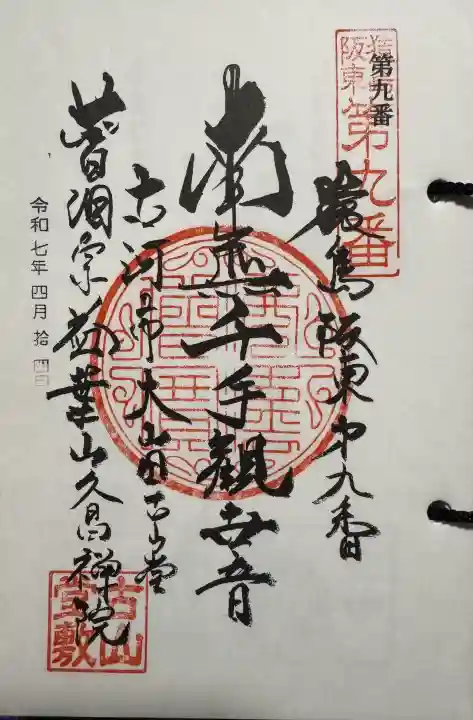 第九番
猿島
阪東
第九番
猿島阪東第九番
南無千手観世音
古河市大山田古山堂
曹洞宗 葉山久昌禅院
令和七年四月拾四日
古山
堂敷